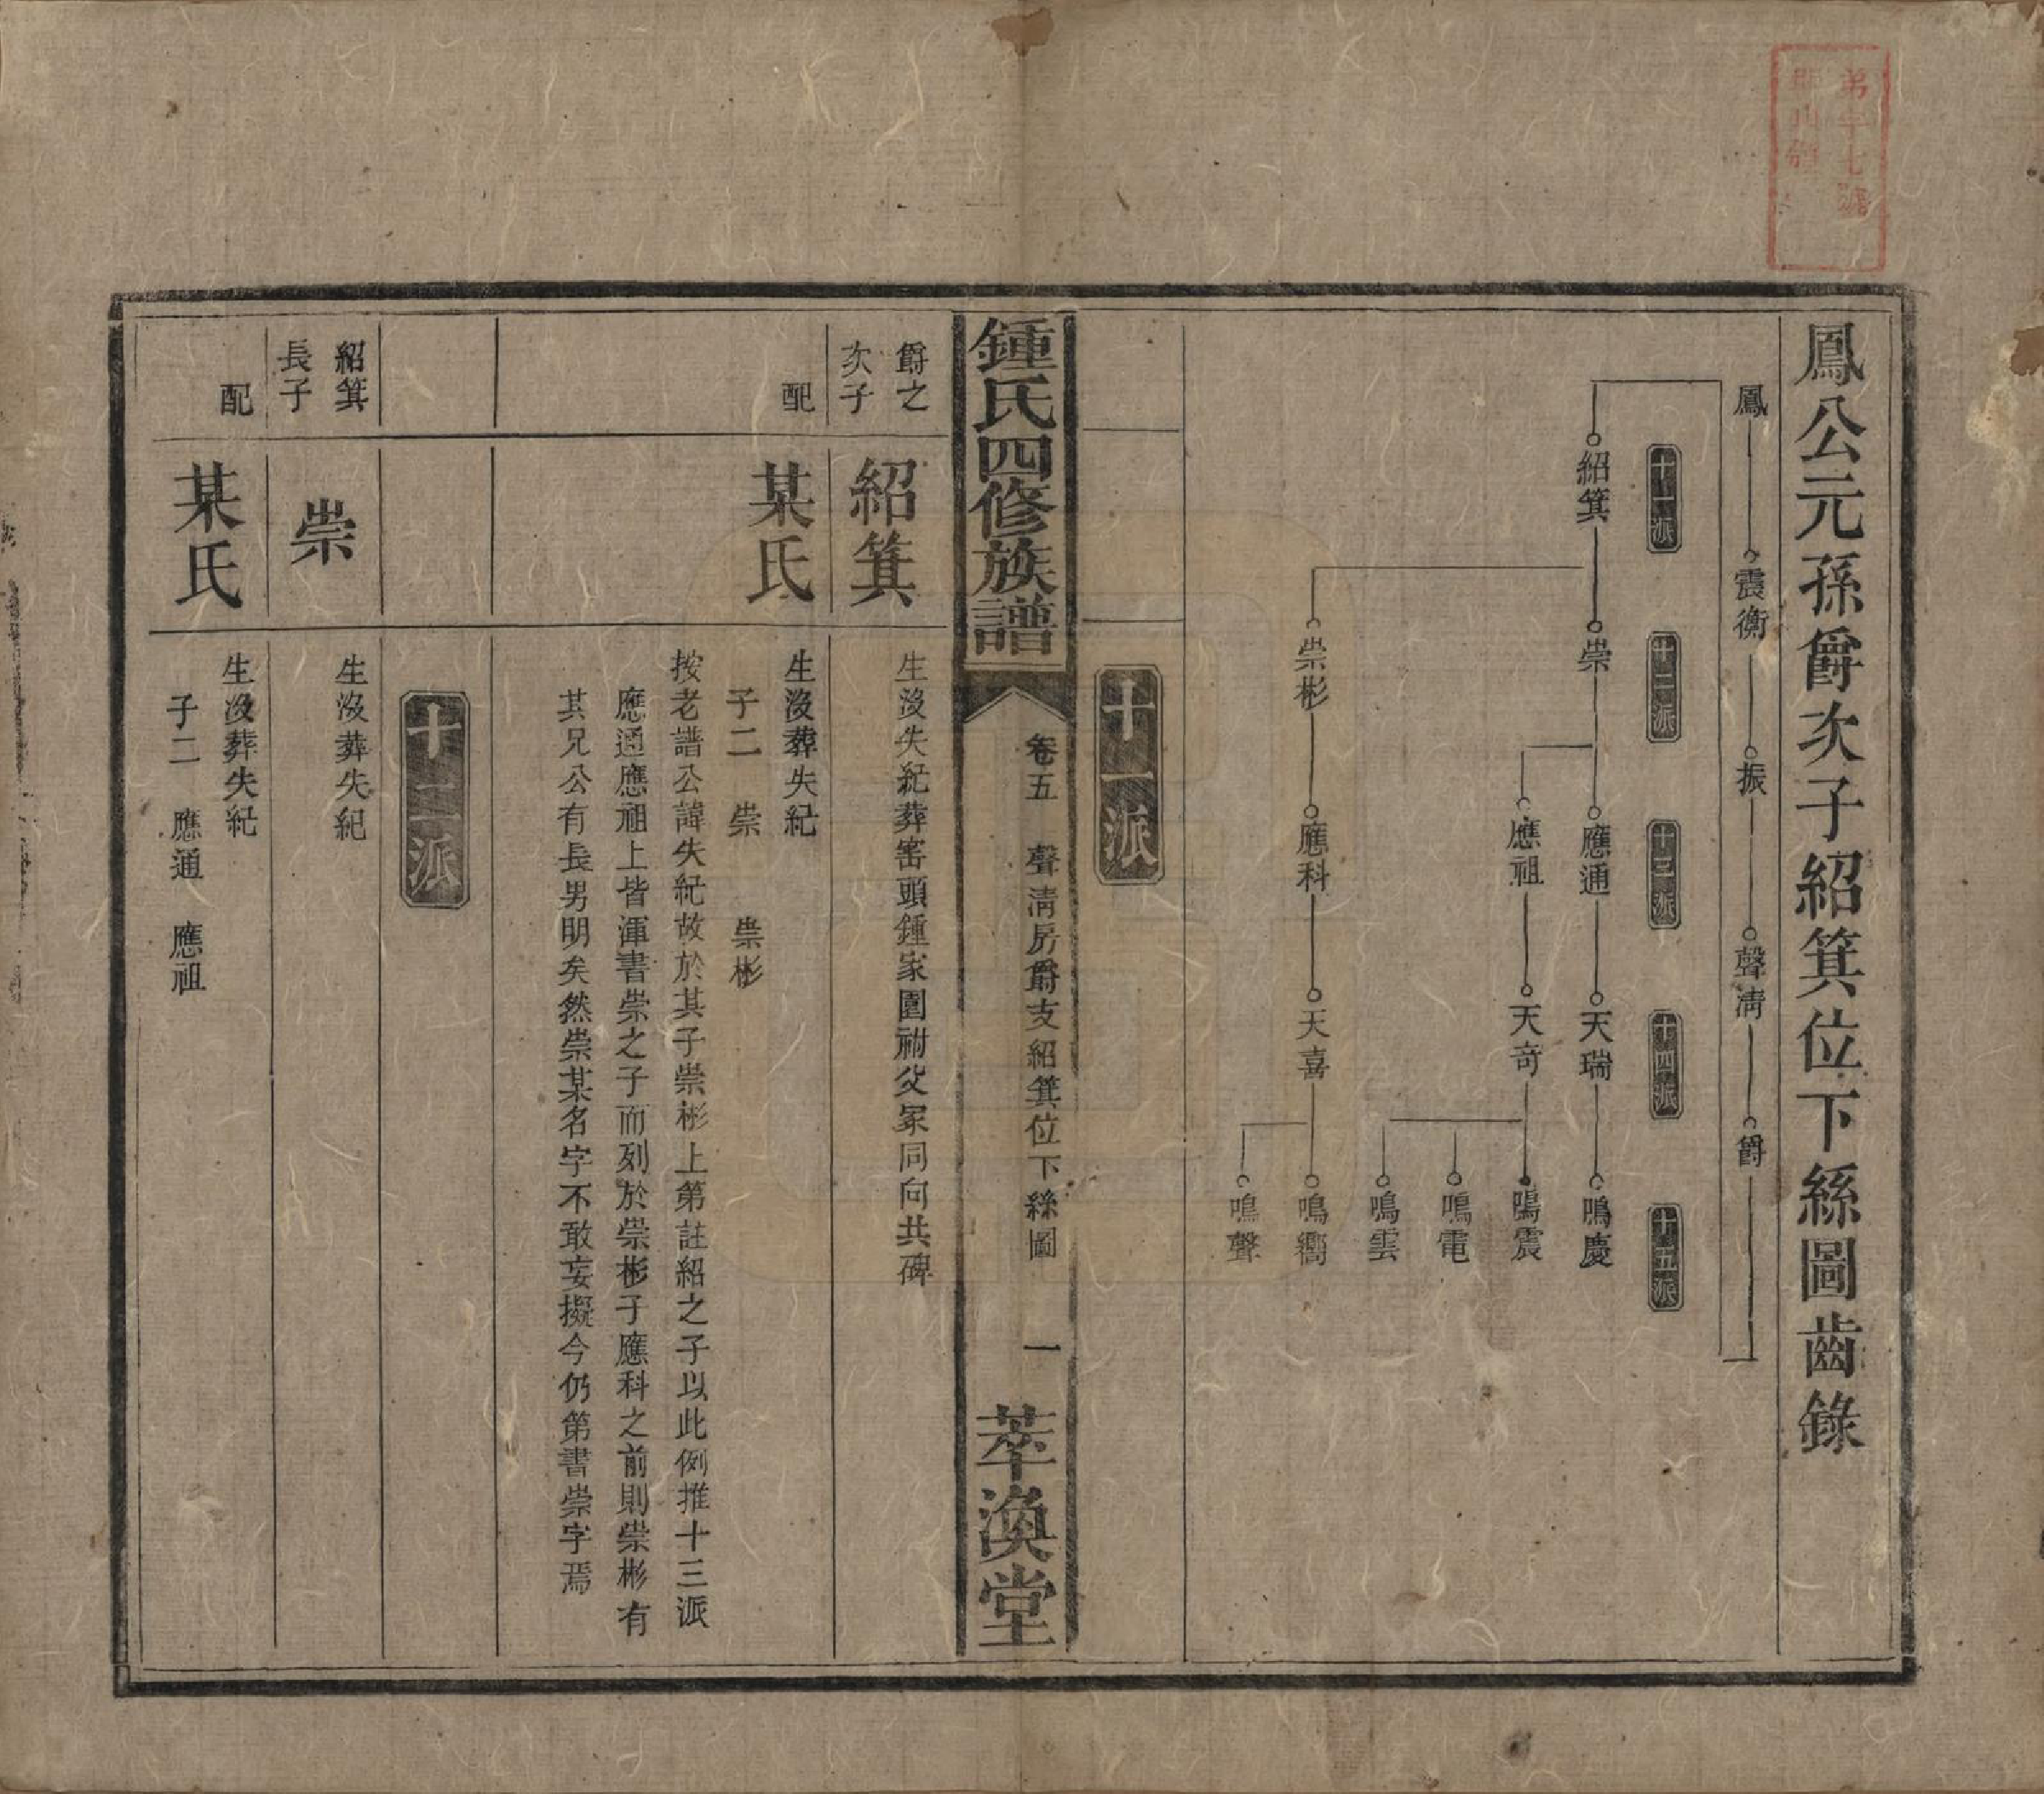 弟廿七號
鳳公元孫爵次子紹箕位下絲圖齒錄
鳳 震衡 振 聲清 爵
十一派 十二派 十三派 十四派 十五派
紹箕 崇 應通 天瑞 鳴慶
應祖 天奇 鳴震
鳴電
鳴雲
崇彬 應科 天喜 鳴嚮
鳴聲
十一派
鍾氏四修族譜 卷五 聲清房爵支紹箕位下絲圖 一 萃渙堂
爵之
次子
紹箕
生沒失紀葬窰頭鍾家圍祔父冢同向共碑
配
某氏
生沒葬失紀
子二 崇 崇彬
按老譜公諱失紀故於其子崇彬上第註紹之子以此例推十三派
應通應祖上皆渾書崇之子而列於崇彬子應科之前則崇彬有
其兄公有長男明矣然崇某名字不敢妄擬今仍第書崇字焉
十二派
紹箕
長子
崇
生沒葬失紀
配
某氏
生沒葬失紀
子二 應通 應祖